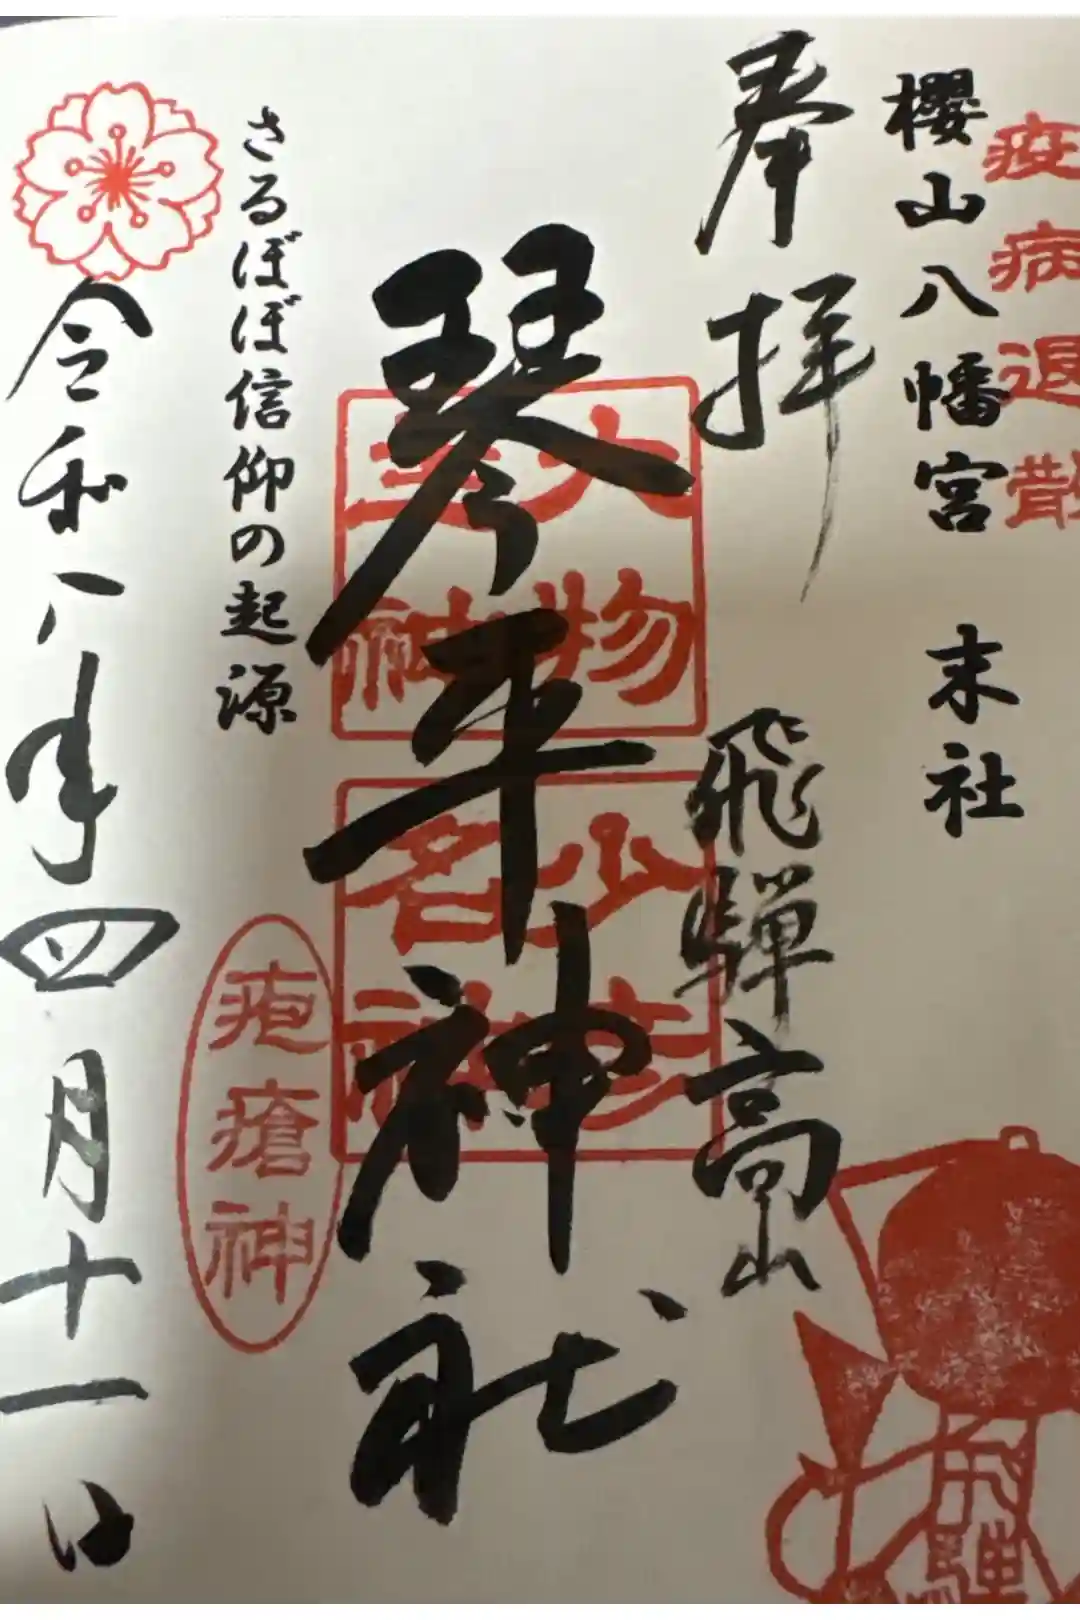 疫病退散
櫻山八幡宮 末社
奉拝
飛騨高山
琴平神社
大物
主神
少彦
名神
さるぼぼ信仰の起源
疱瘡神
令和八年四月十一日
飛騨